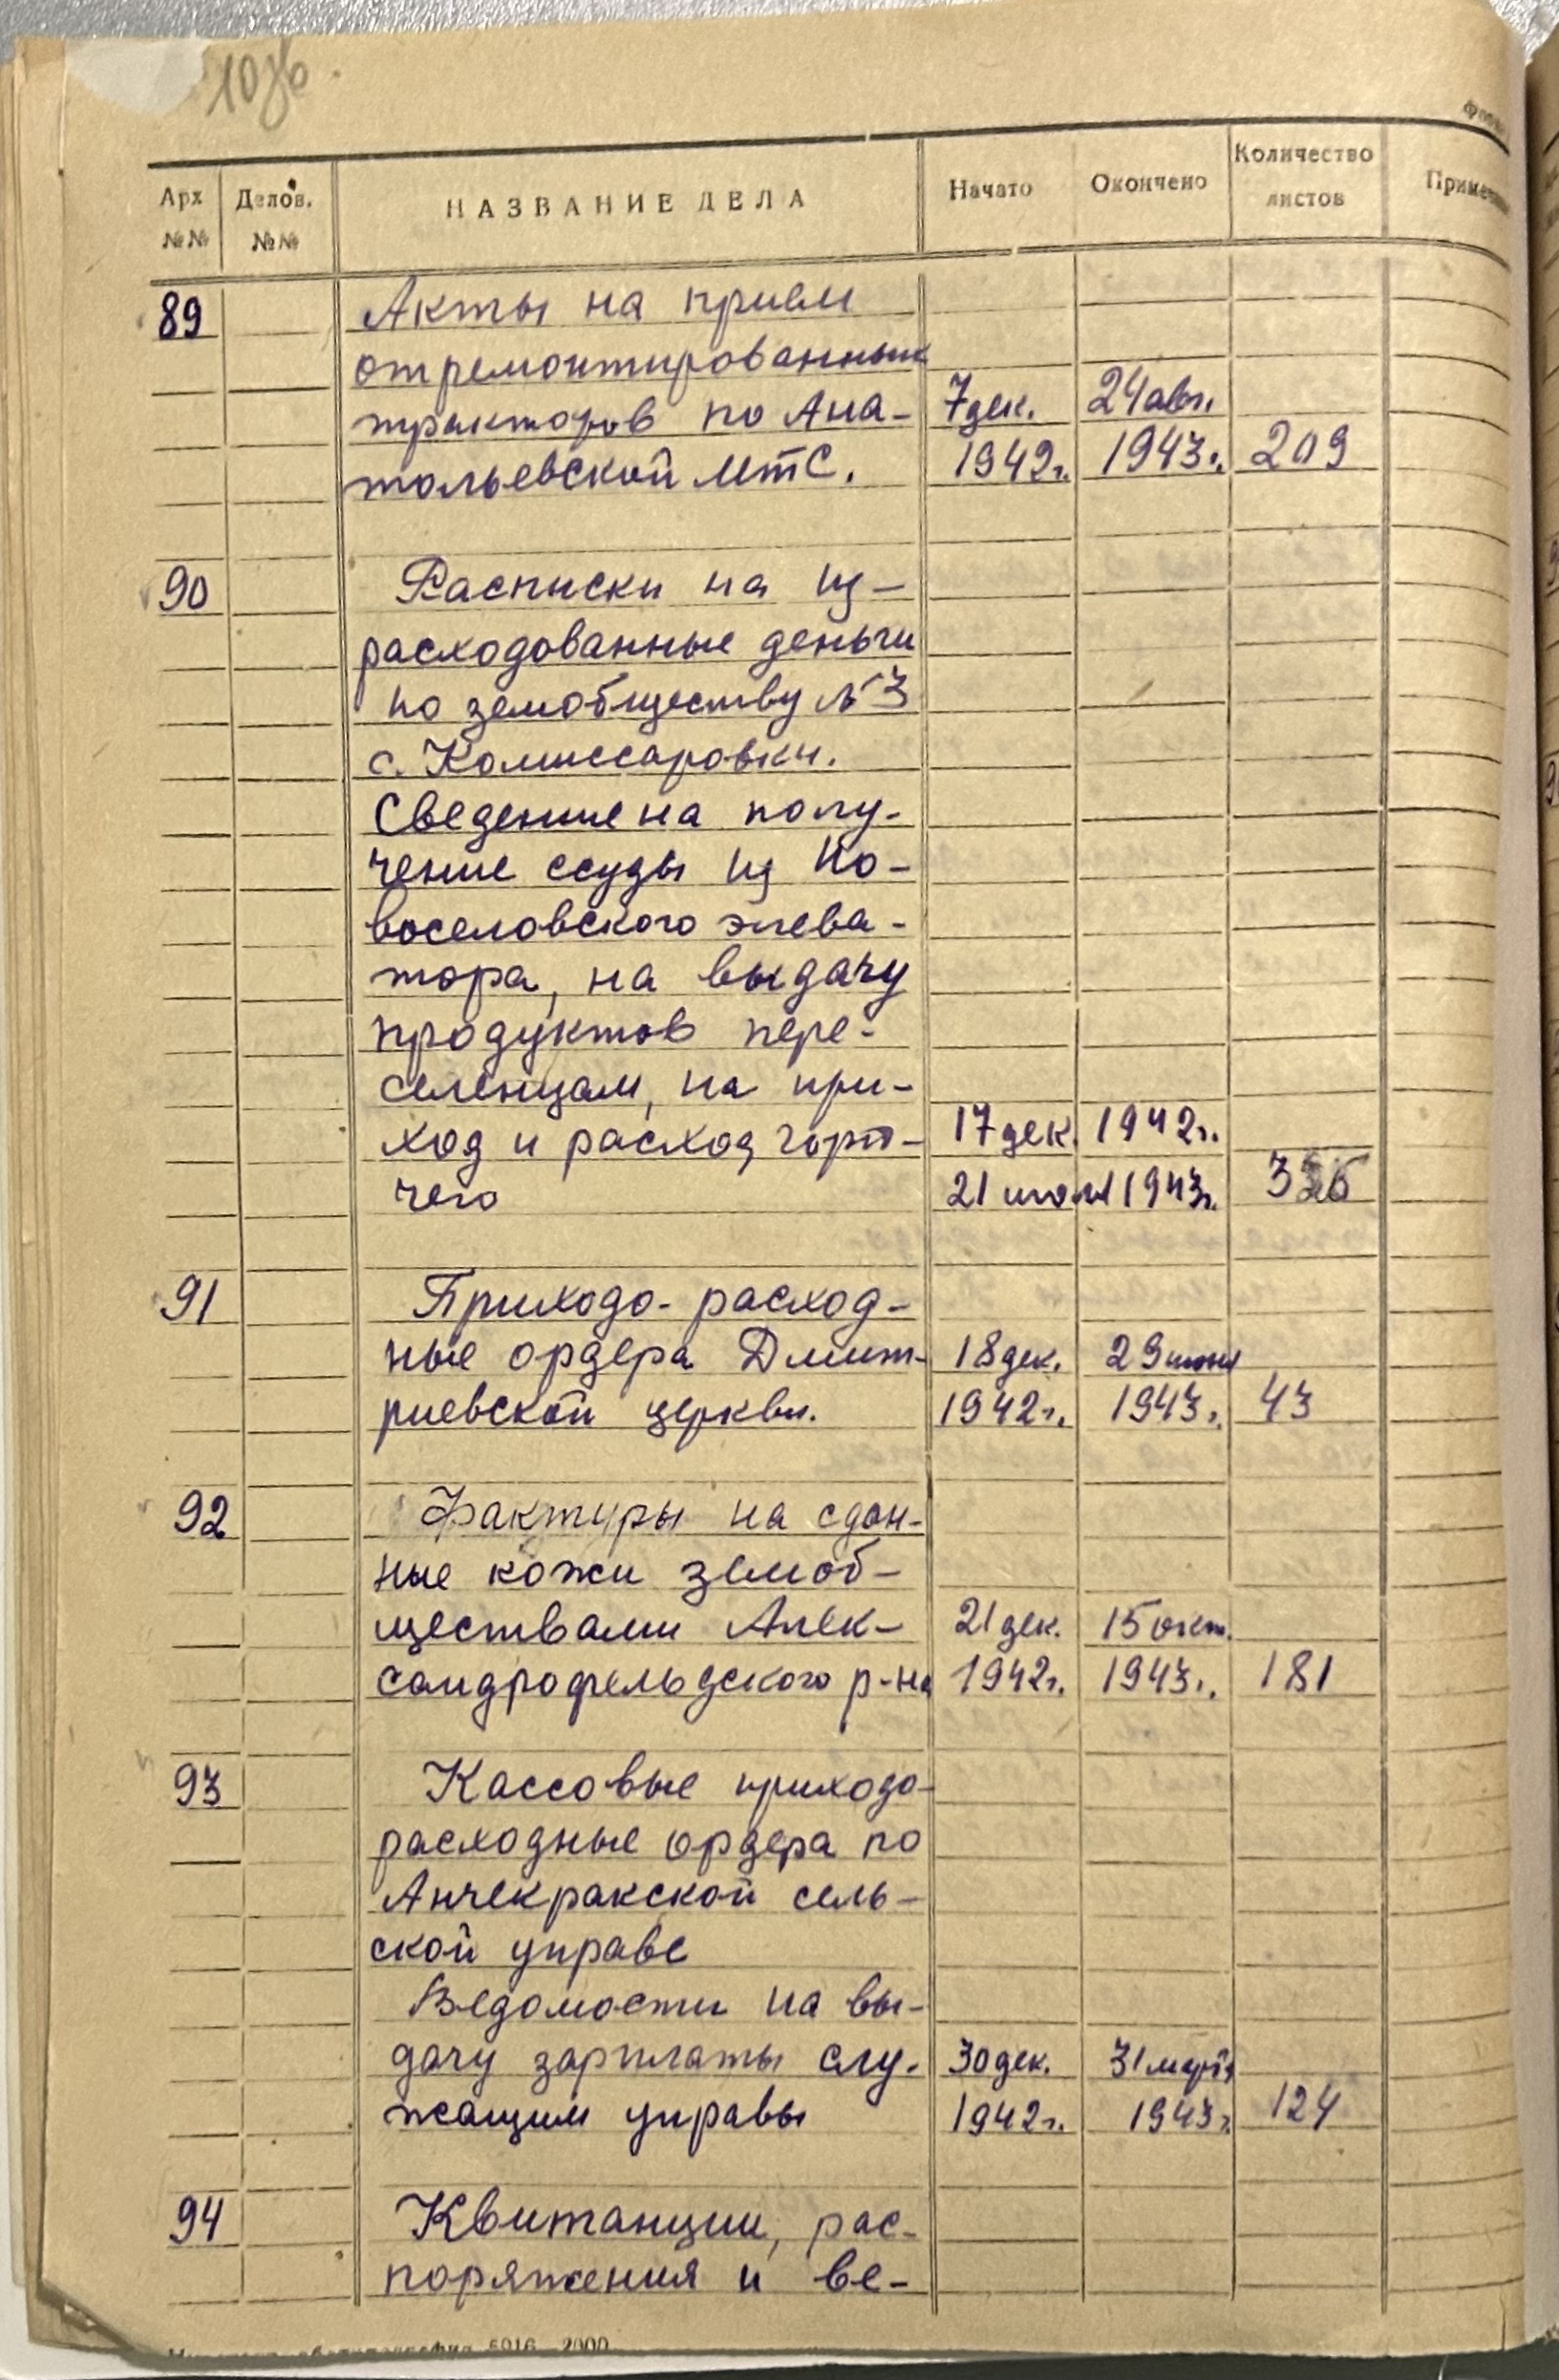 Арх №№ Делов. №№ НАЗВАНИЕ ДЕЛА Начато Окончено Количество листов
89 Акты на прием
отремонтированных
тракторов по Ана- 7 дек. 24 авг.
тольевской МТС. 1942г. 1943г. 209
90 Расписки на из-
расходованные деньги
по земобществу № 3
с. Комиссаровки.
Сведение на полу-
чение ссуды из Но-
воселовского элева-
тора, на выдачу
продуктов пере-
селенцам, на при-
ход и расход горю- 17 дек. 1942г.
чего 21 июля 1943г.
91 Приходо-расход-
ные ордера Дмит- 18 дек. 29 июня
риевской церкви. 1942г. 1943г. 43
92 Фактуры на сдан-
ные кожи земоб-
ществами Алек- 21 дек. 15 окт.
сандрофельдского р-на 1942г. 1943г. 181
93 Кассовые приходо-
расходные ордера по
Анчекракской сель-
ской управе
Ведомости на вы-
дачу зарплаты слу- 30 дек. 31 марта
жащим управы 1942г. 1943г. 124
94 Квитанции, рас-
поряжения и ве-